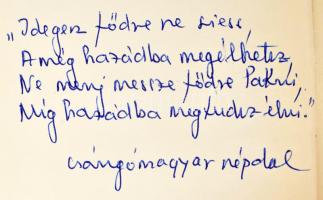 „Idegen födre ne siess,
Amég hazádba megélhetsz,
Ne menj messze födre lakni,
Míg hazádba megtudsz élni."
csángómagyar népdal